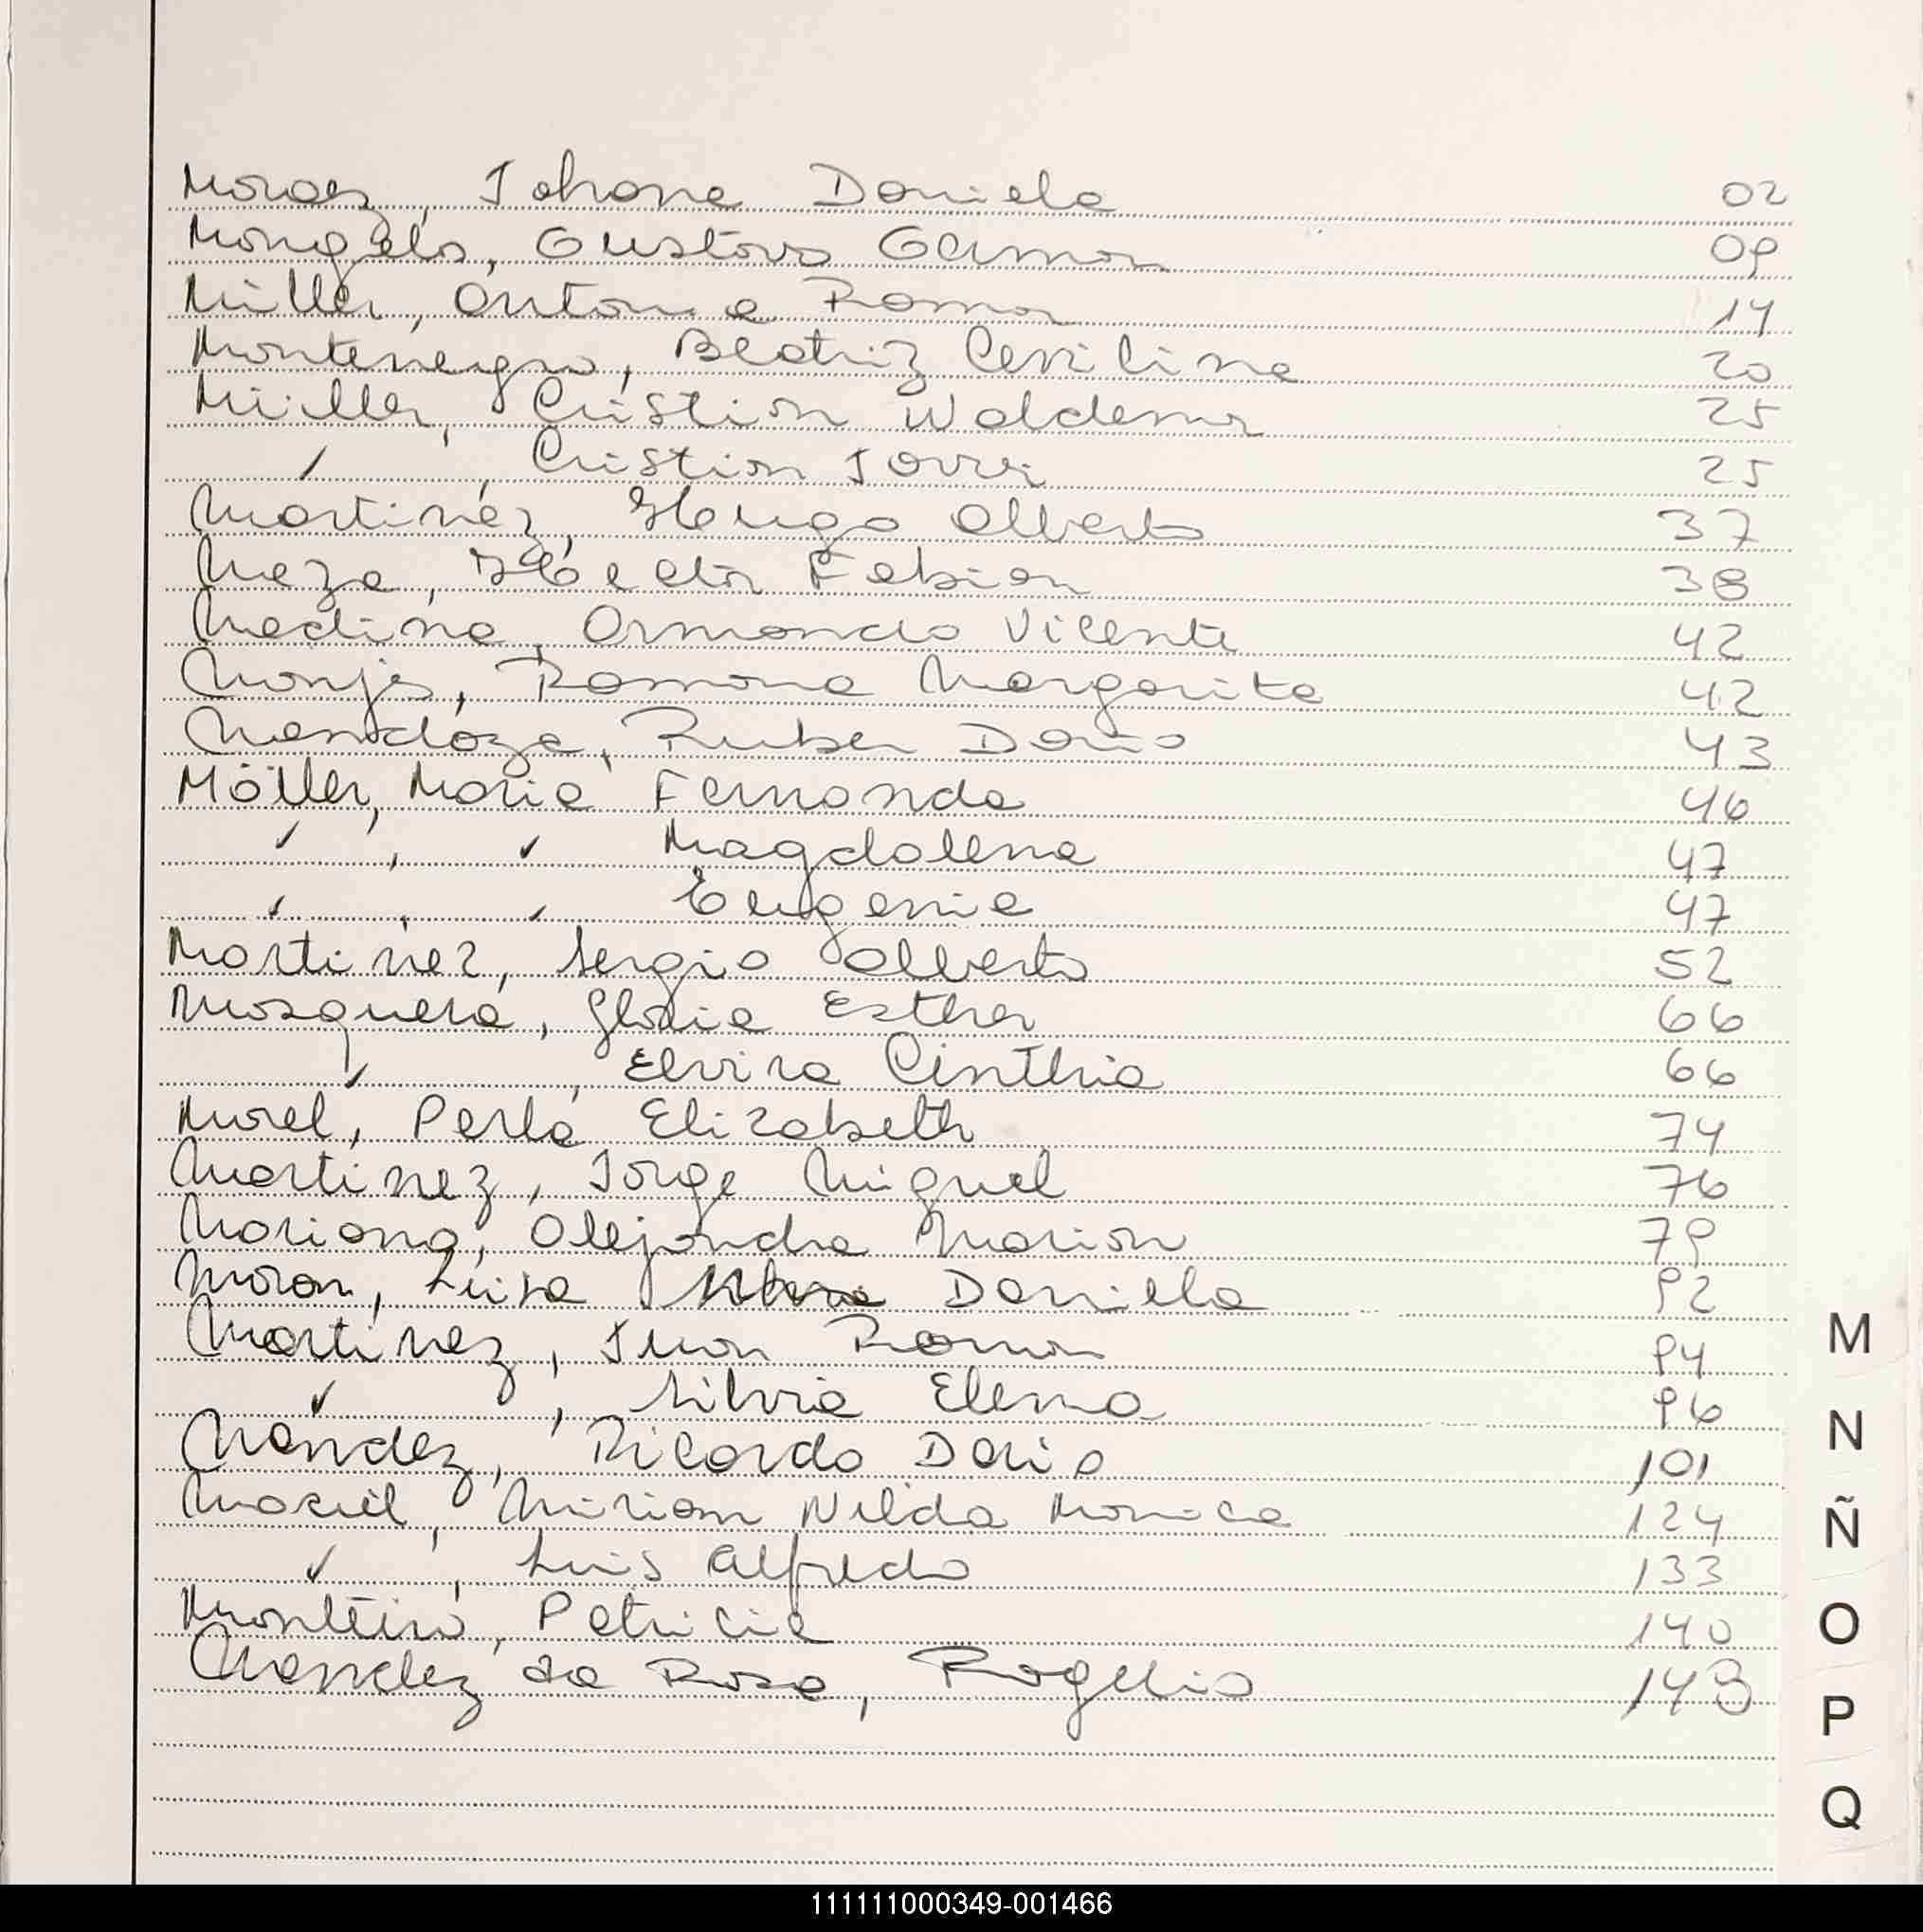 Moraez, Johana Daniela 02
Mongelos, Gustavo German 09
Müller, Antonia Ramona 14
Montenegro, Beatriz Ceniliana 20
Müller, Cristian Waldemar 25
✓ , Cristian Javier 25
Martinez, Hugo Alberto 37
Meza, Héctor Fabian 38
Medina, Armando Vicente 42
Monjes, Ramona Margarita 42
Mendoza, Ruben Dario 43
Möller, Maria Fernanda 46
✓ , ✓ Magdalena 47
✓ , ✓ Eugenia 47
Martinez, Sergio Alberto 52
Mosquera, Gloria Esther 66
✓ , Elvira Cinthia 66
Morel, Perla Elizabeth 74
Martinez, Jorge Miguel 76
Mariano, Alejandra Marion 79
Moran, Luisa Daniela 92
Martinez, Juan Ramon 94
✓ , Silvia Elena 96
Mendez, Ricardo Dario 101
Maciel, Miriam Nilda Monica 124
✓ , Luis Alfredo 133
Monteiro, Patricia 140
Mendez da Rosa, Rogelio 143
M
N
Ñ
O
P
Q
111111000349-001466